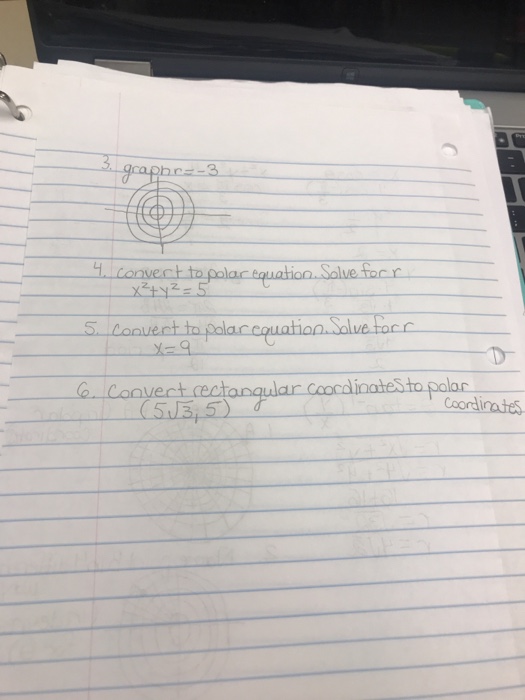 3. graph r=-3
4. convert to polar equation. Solve for r
x²+y²=5
5. convert to polar equation. Solve for r
x=9
6. Convert rectangular coordinates to polar
(5√3, 5) coordinates